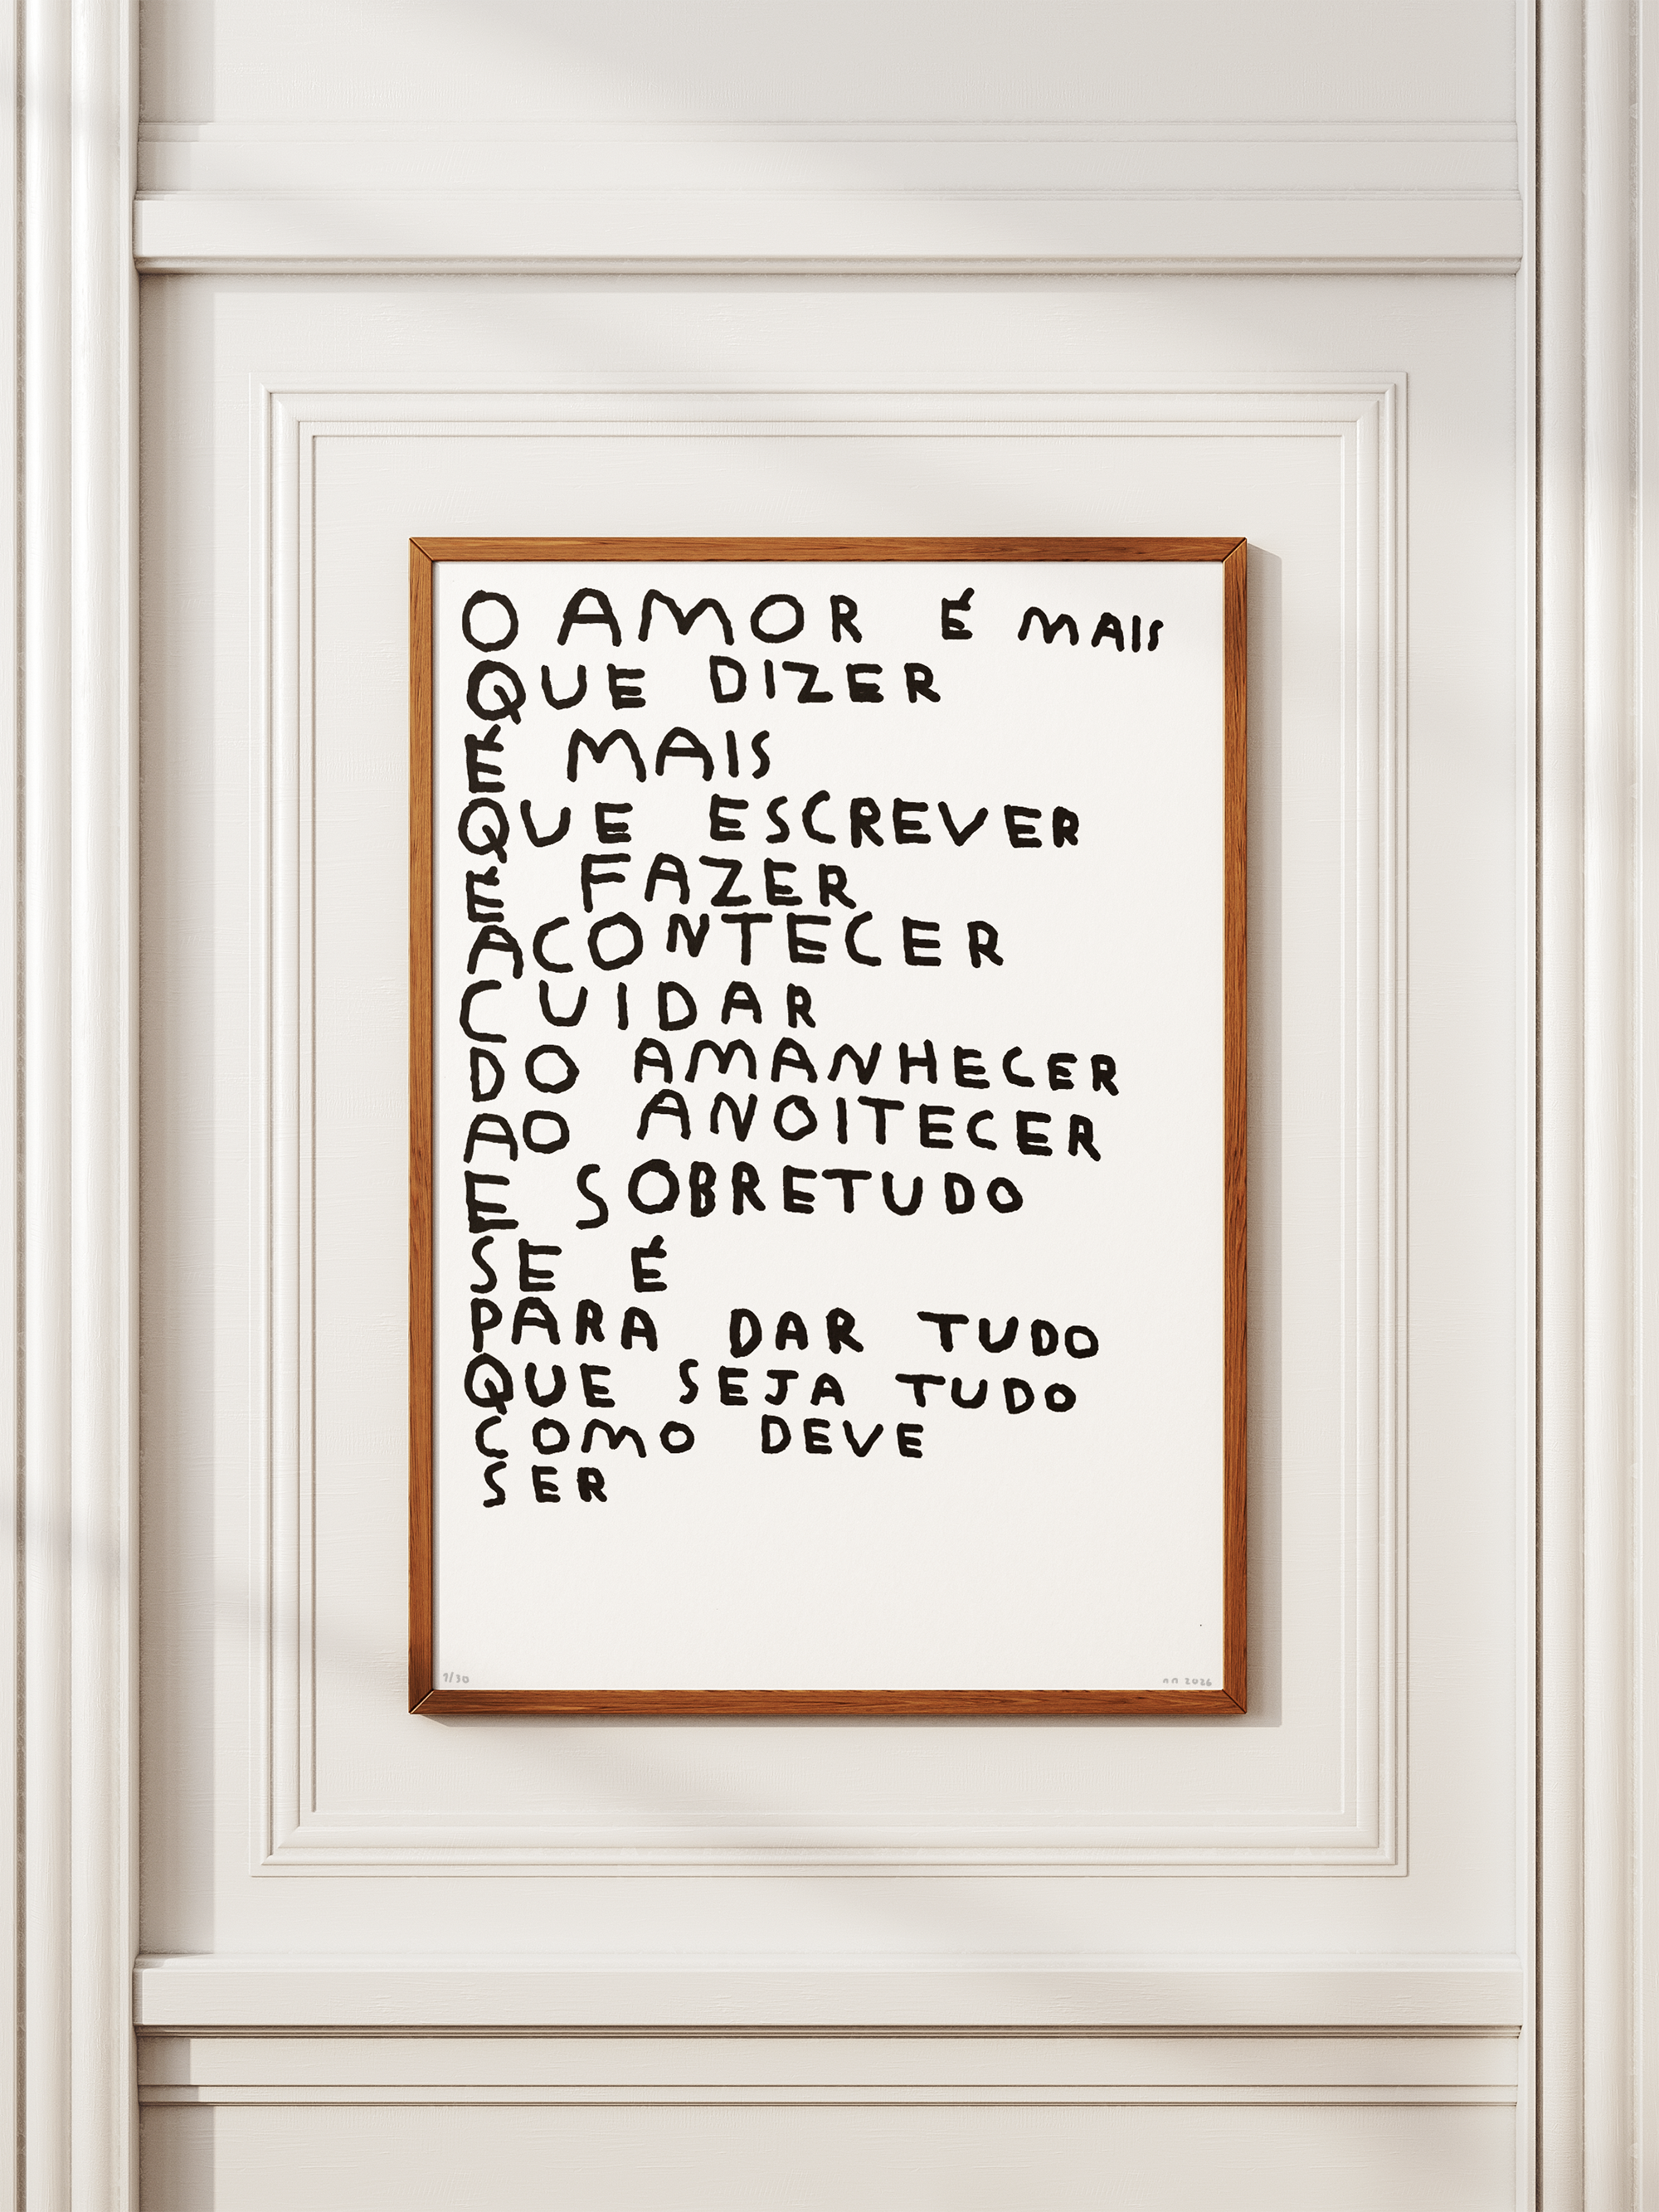 O AMOR É MAIS
QUE DIZER
É MAIS
QUE ESCREVER
É FAZER
ACONTECER
CUIDAR
DO AMANHECER
AO ANOITECER
E SOBRETUDO
SE É
PARA DAR TUDO
QUE SEJA TUDO
COMO DEVE
SER
1/30